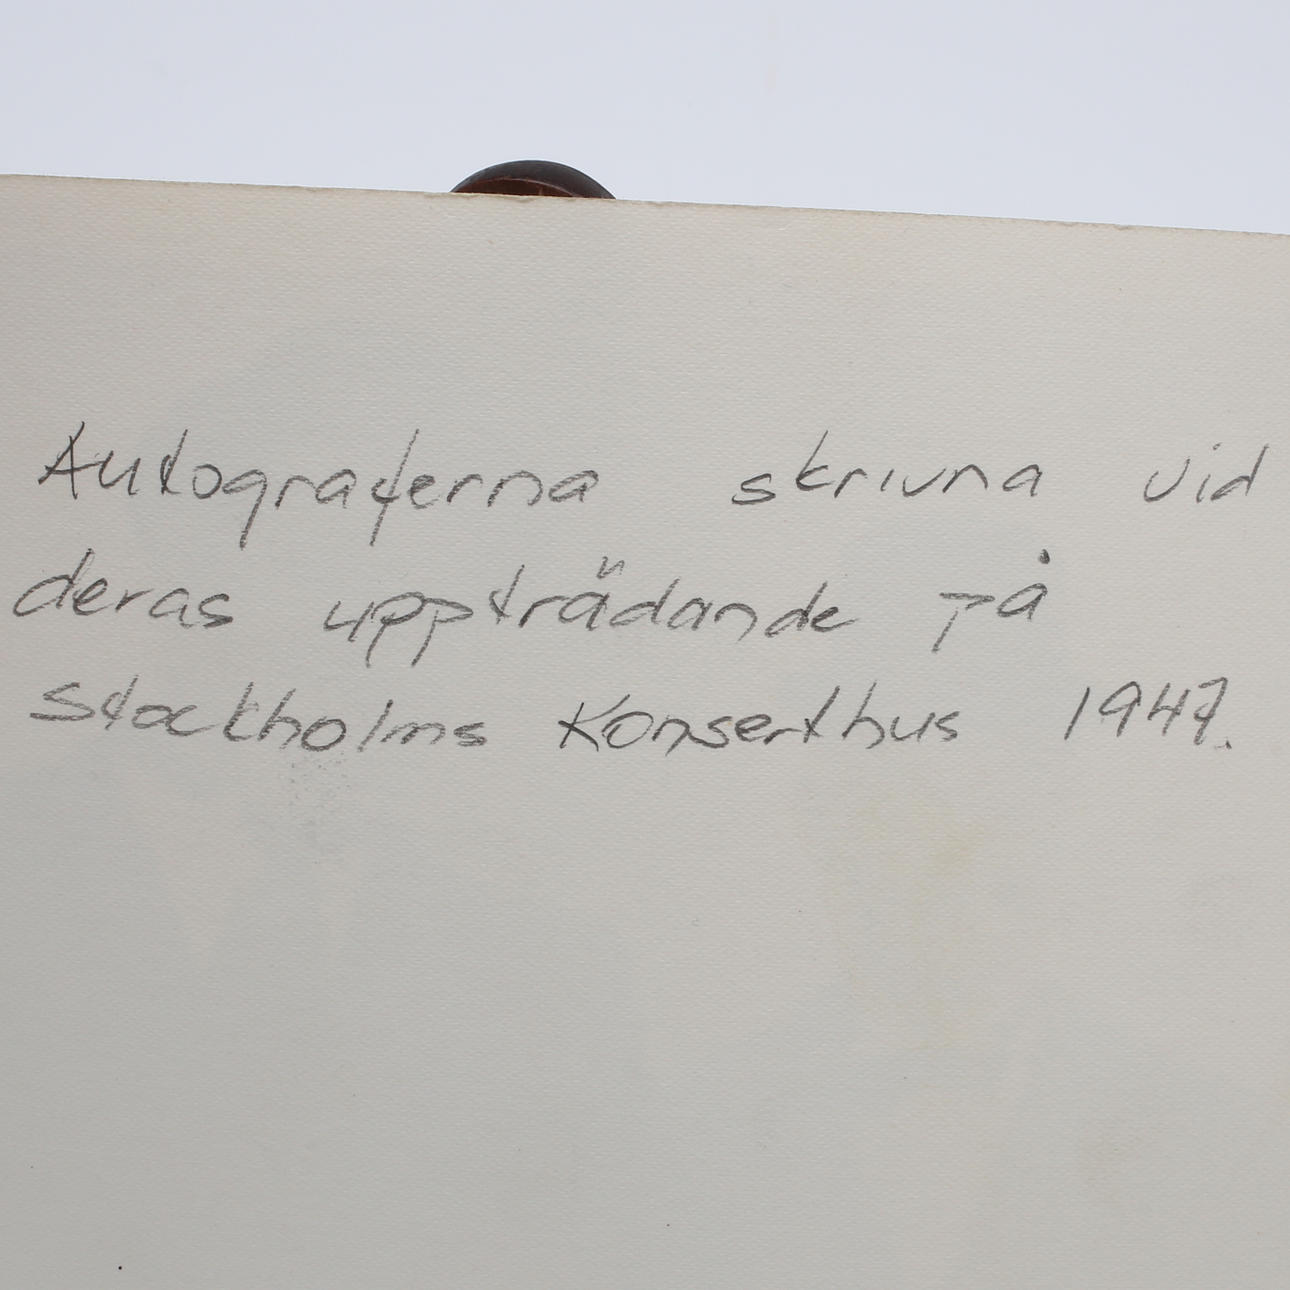 Autograferna skrivna vid
deras uppträdande på
Stockholms Konserthus 1947.